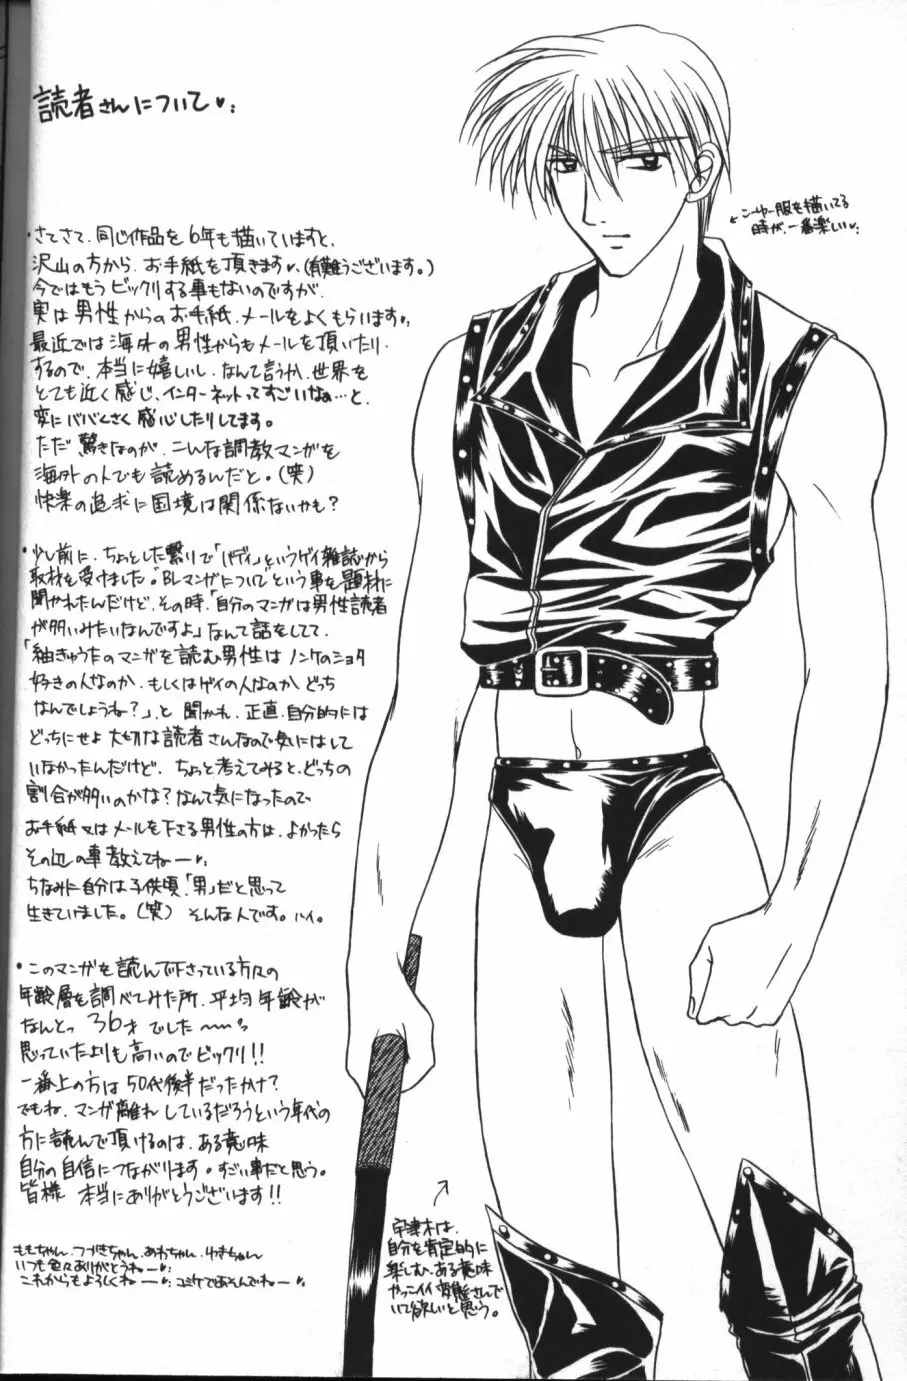 読者さんについて♥:
・さてさて、同じ作品を6年も描いていますと、
沢山の方から、お手紙を頂きます♥、(有難うございます。)
今ではもうビックリする事もないのですが、
実は男性からのお手紙、メールをよくもらいます♥:
最近では海外の男性からもメールを頂いたり
するので、本当に嬉しいし、なんて言うか、世界を
とても近く感じ、インターネットってすごいなぁ…と、
変にババくさく感心したりしてます。
ただ驚きなのが、こんな調教マンガを
海外の人でも読めるんだと。(笑)
快楽の追求に国境は関係ないかも?
・少し前に、ちょっとした繋りで「バディ」というゲイ雑誌から
取材を受けました。"BLマンガについて"という事を題材に
聞かれたんだけど、その時、「自分のマンガは男性読者
が多いみたいなんですよ」なんて話をしてて、
「紬きゅうたのマンガを読む男性はノンケのショタ
好きの人なのか、もしくはゲイの人なのか、どっち
なんでしょうね?」、と聞かれ、正直、自分的には
どっちにせよ大切な読者さんなので気にはして
いなかったんだけど、ちょっと考えてみると、どっちの
割合が多いのかな?なんて気になったので
お手紙又はメールを下さる男性の方は、よかったら
その辺の事教えてねー♥:
ちなみに自分は子供頃、「男」だと思って
生きていました。(笑) そんな人です。ハイ。
・このマンガを読んで下さっている方々の
年齢層を調べてみた所、平均年齢が
なんとっ 36才でした〜〜〜
思っていたよりも高いのでビックリ!!
一番上の方は50代後半だったかナ?
でもね、マンガ離れしているだろうという年代の
方に読んで頂けるのは、ある意味
自分の自信につながります。すごい事だと思う。
皆様 本当にありがとうございます!!
ももちゃん、つづきちゃん、あわちゃん、ゆきちゃん
いつも色々ありがとうねー♥:
これからもよろしくねー♥:コミケであそんでねー♥:
服を描いてる
時が、一番楽しい♥:
宇津木は、
自分を肯定的に
楽しむ、ある意味
やっこイイ変態さんで
いて欲しいと思う。